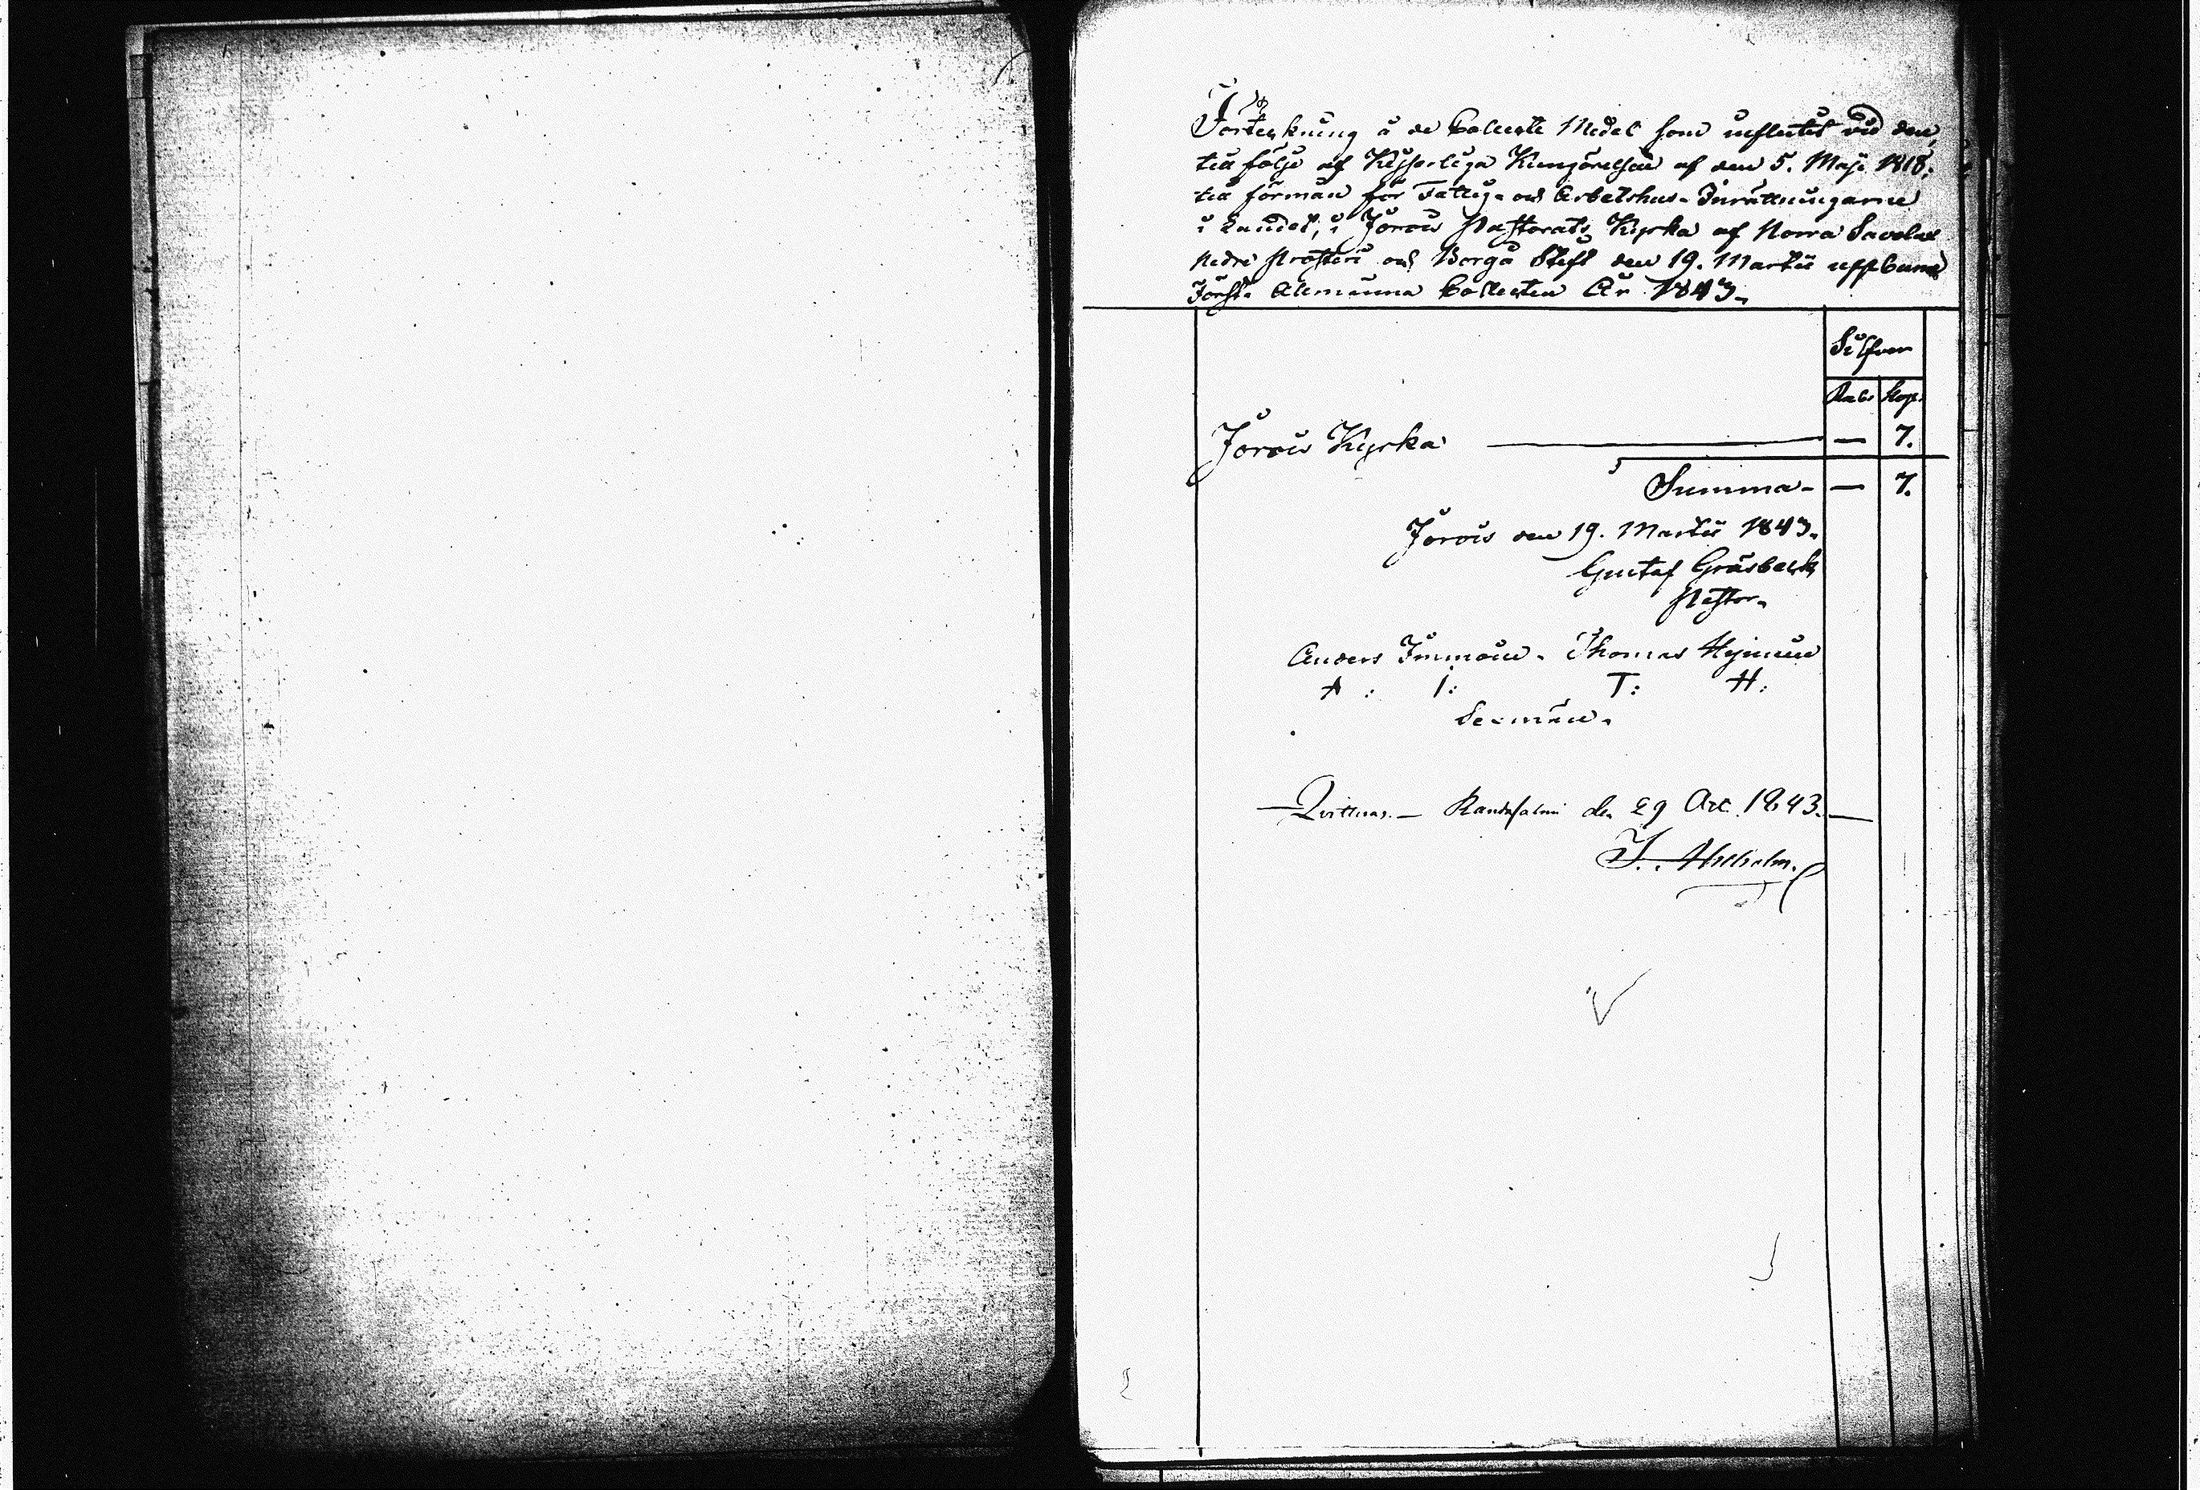 Förteckning å de Collecte Medel som influtit vid den,
till följe af Kejserliga Kungörelsen af den 5. Maji 1818,
till förmån för Fattig- och Arbetshus-Inrättningarne
i Landet, i Jorois Pastorats Kyrka af Norra Savolax
nedre Prosteri och Borgå Stift den 19. Martii uppburne
Första Allmänna Collecten År 1843.
Silfver
Rub. Kop.
Jorois Kyrka — 7.
Summa - — 7.
Jorois den 19. Martii 1843.
Gustaf Gråsbeck
Pastor.
Anders Immoin. Thomas Hyninen
A : I: T: H:
Sexmän.
Qvitteras. — Randasalmi d. 29 Oct. 1843. —